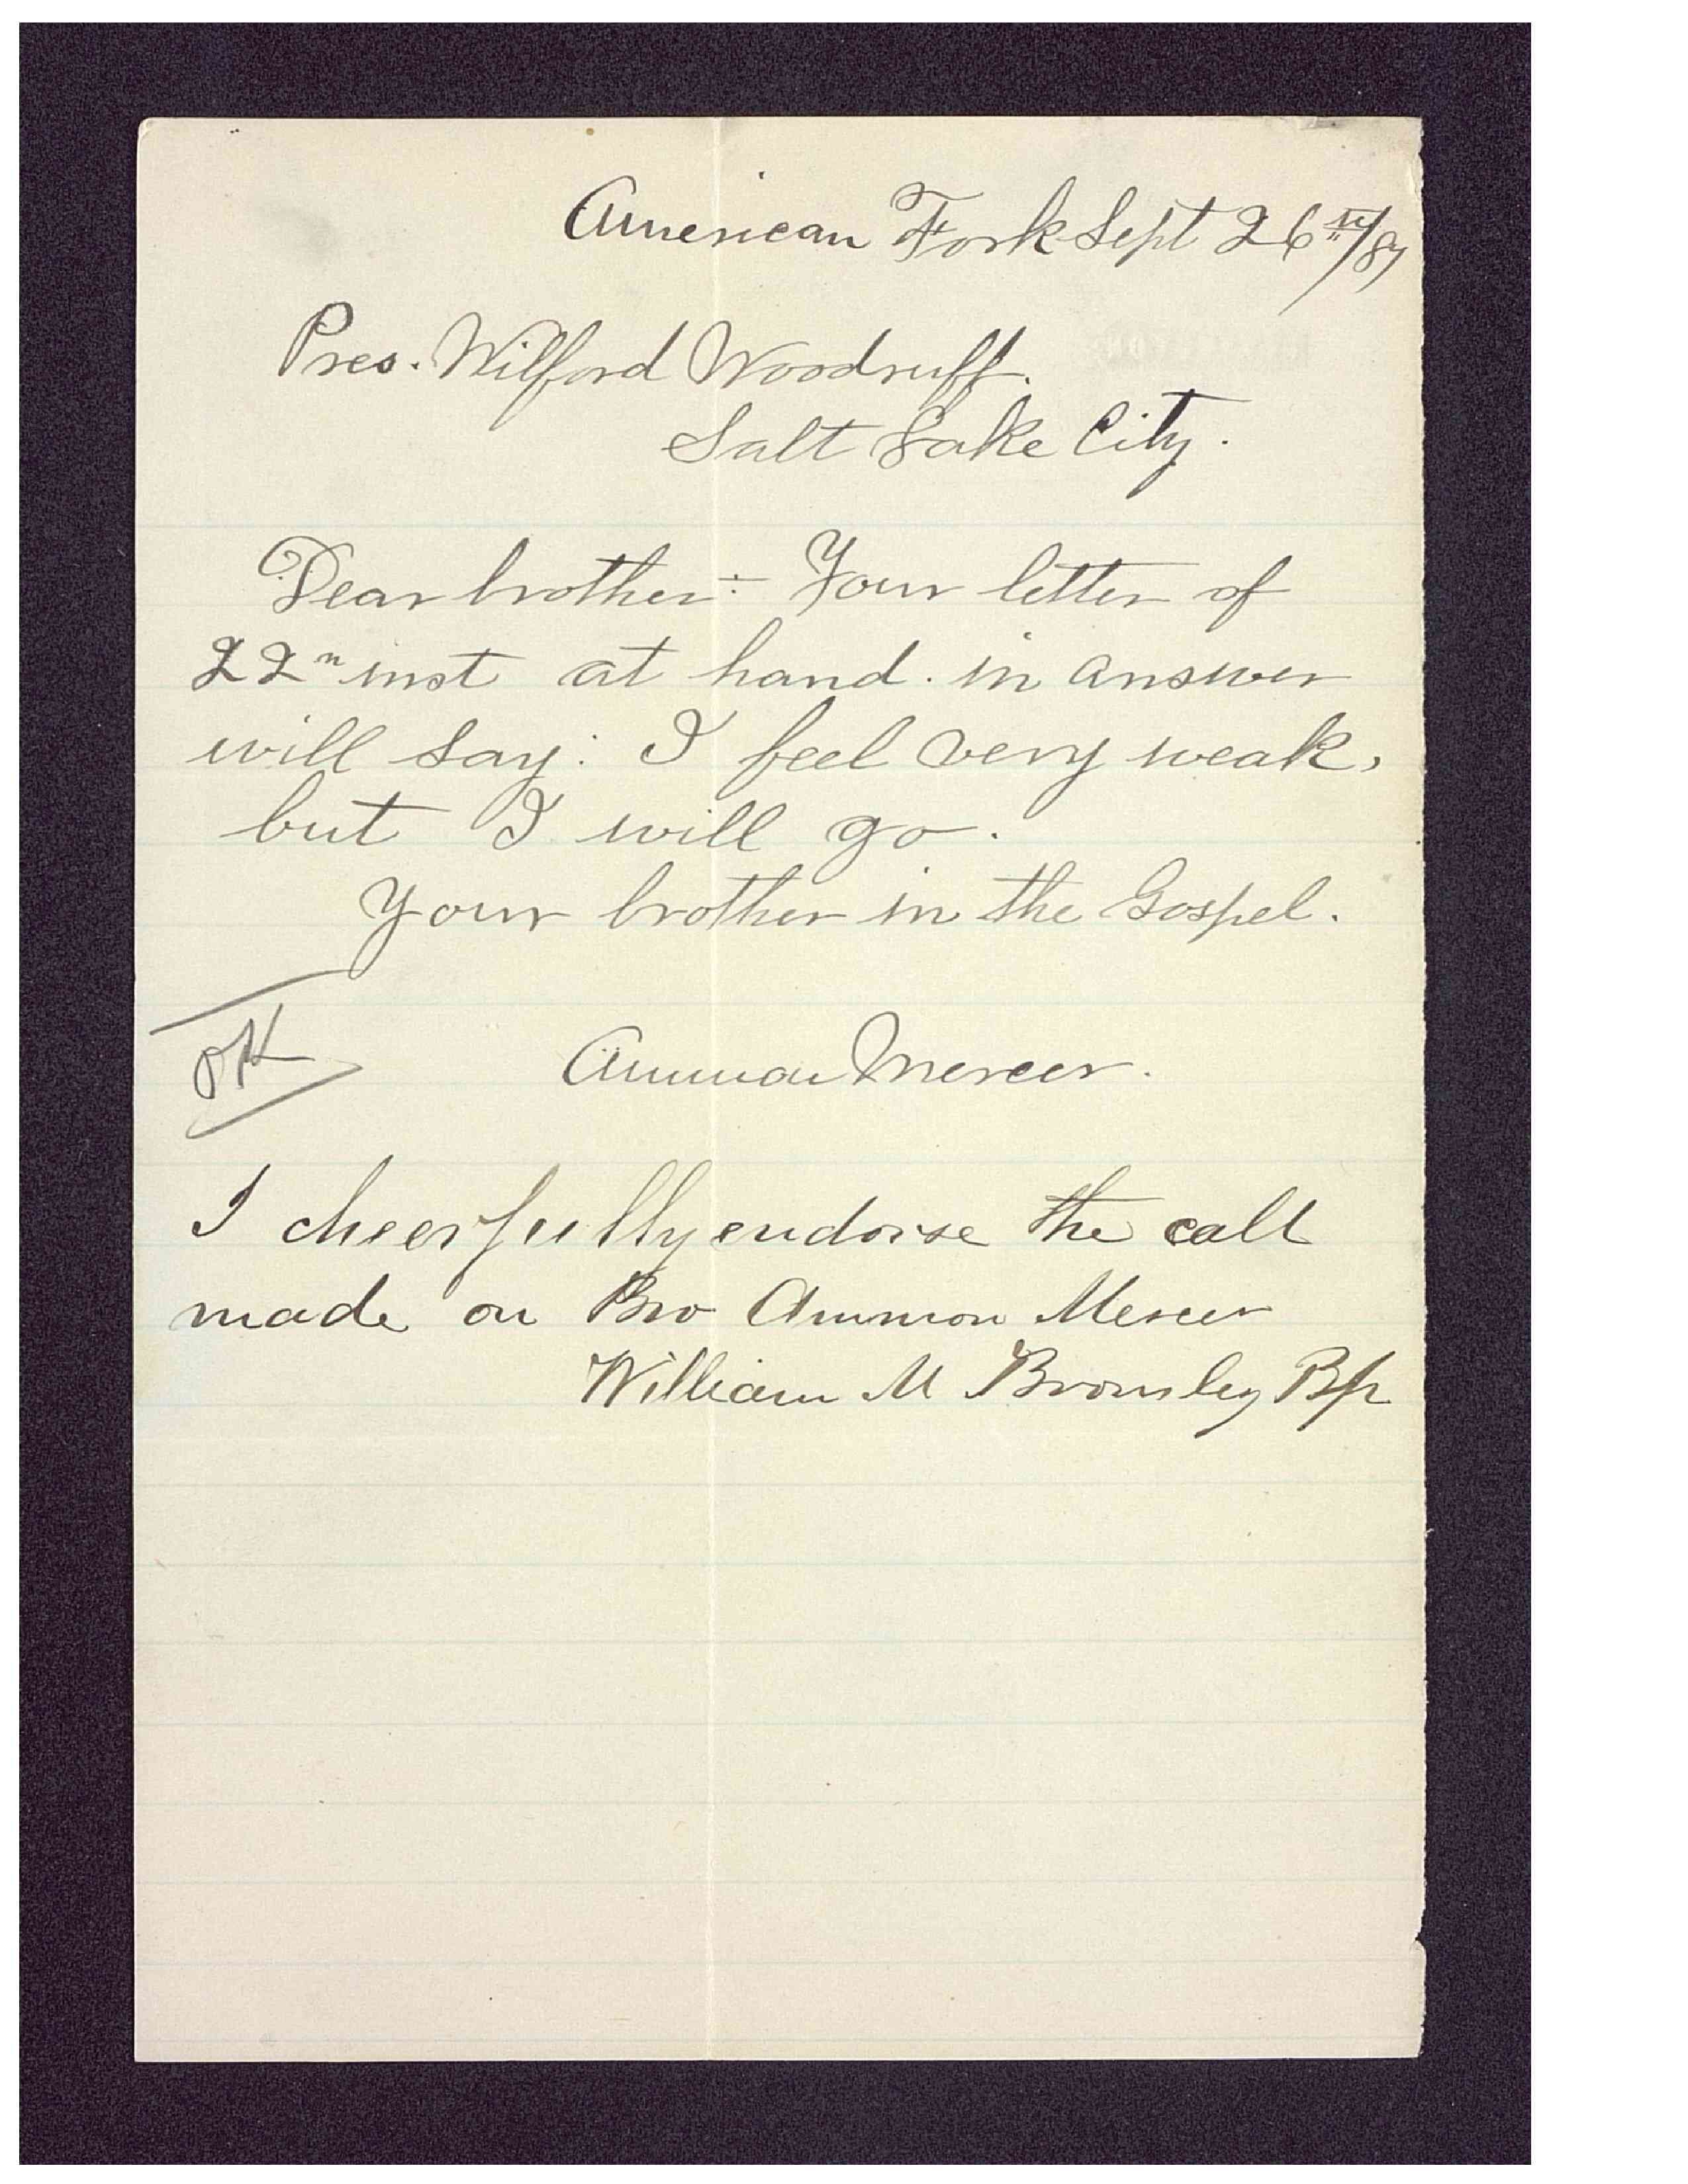 American Fork Sept 26th/89
Pres. Wilford Woodruff.
Salt Lake City.
Dear brother:- Your letter of
22n inst at hand. in answer
will say: I feel very weak,
but I will go.
Your brother in the Gospel.
OK
Ammon Mercer.
I cheerfully endorse the call
made on Bro Ammon Mercer
William M Bromley Bp